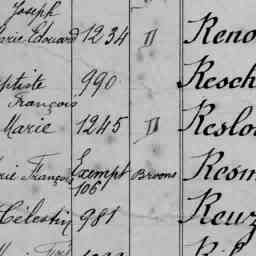 Joseph
Marie Edouard 1234 " Reno
aptiste 990 Resch
François
Marie 1245 " Reslou
rie François Exempt Broons Resm
106
Célestin 981 Reuz